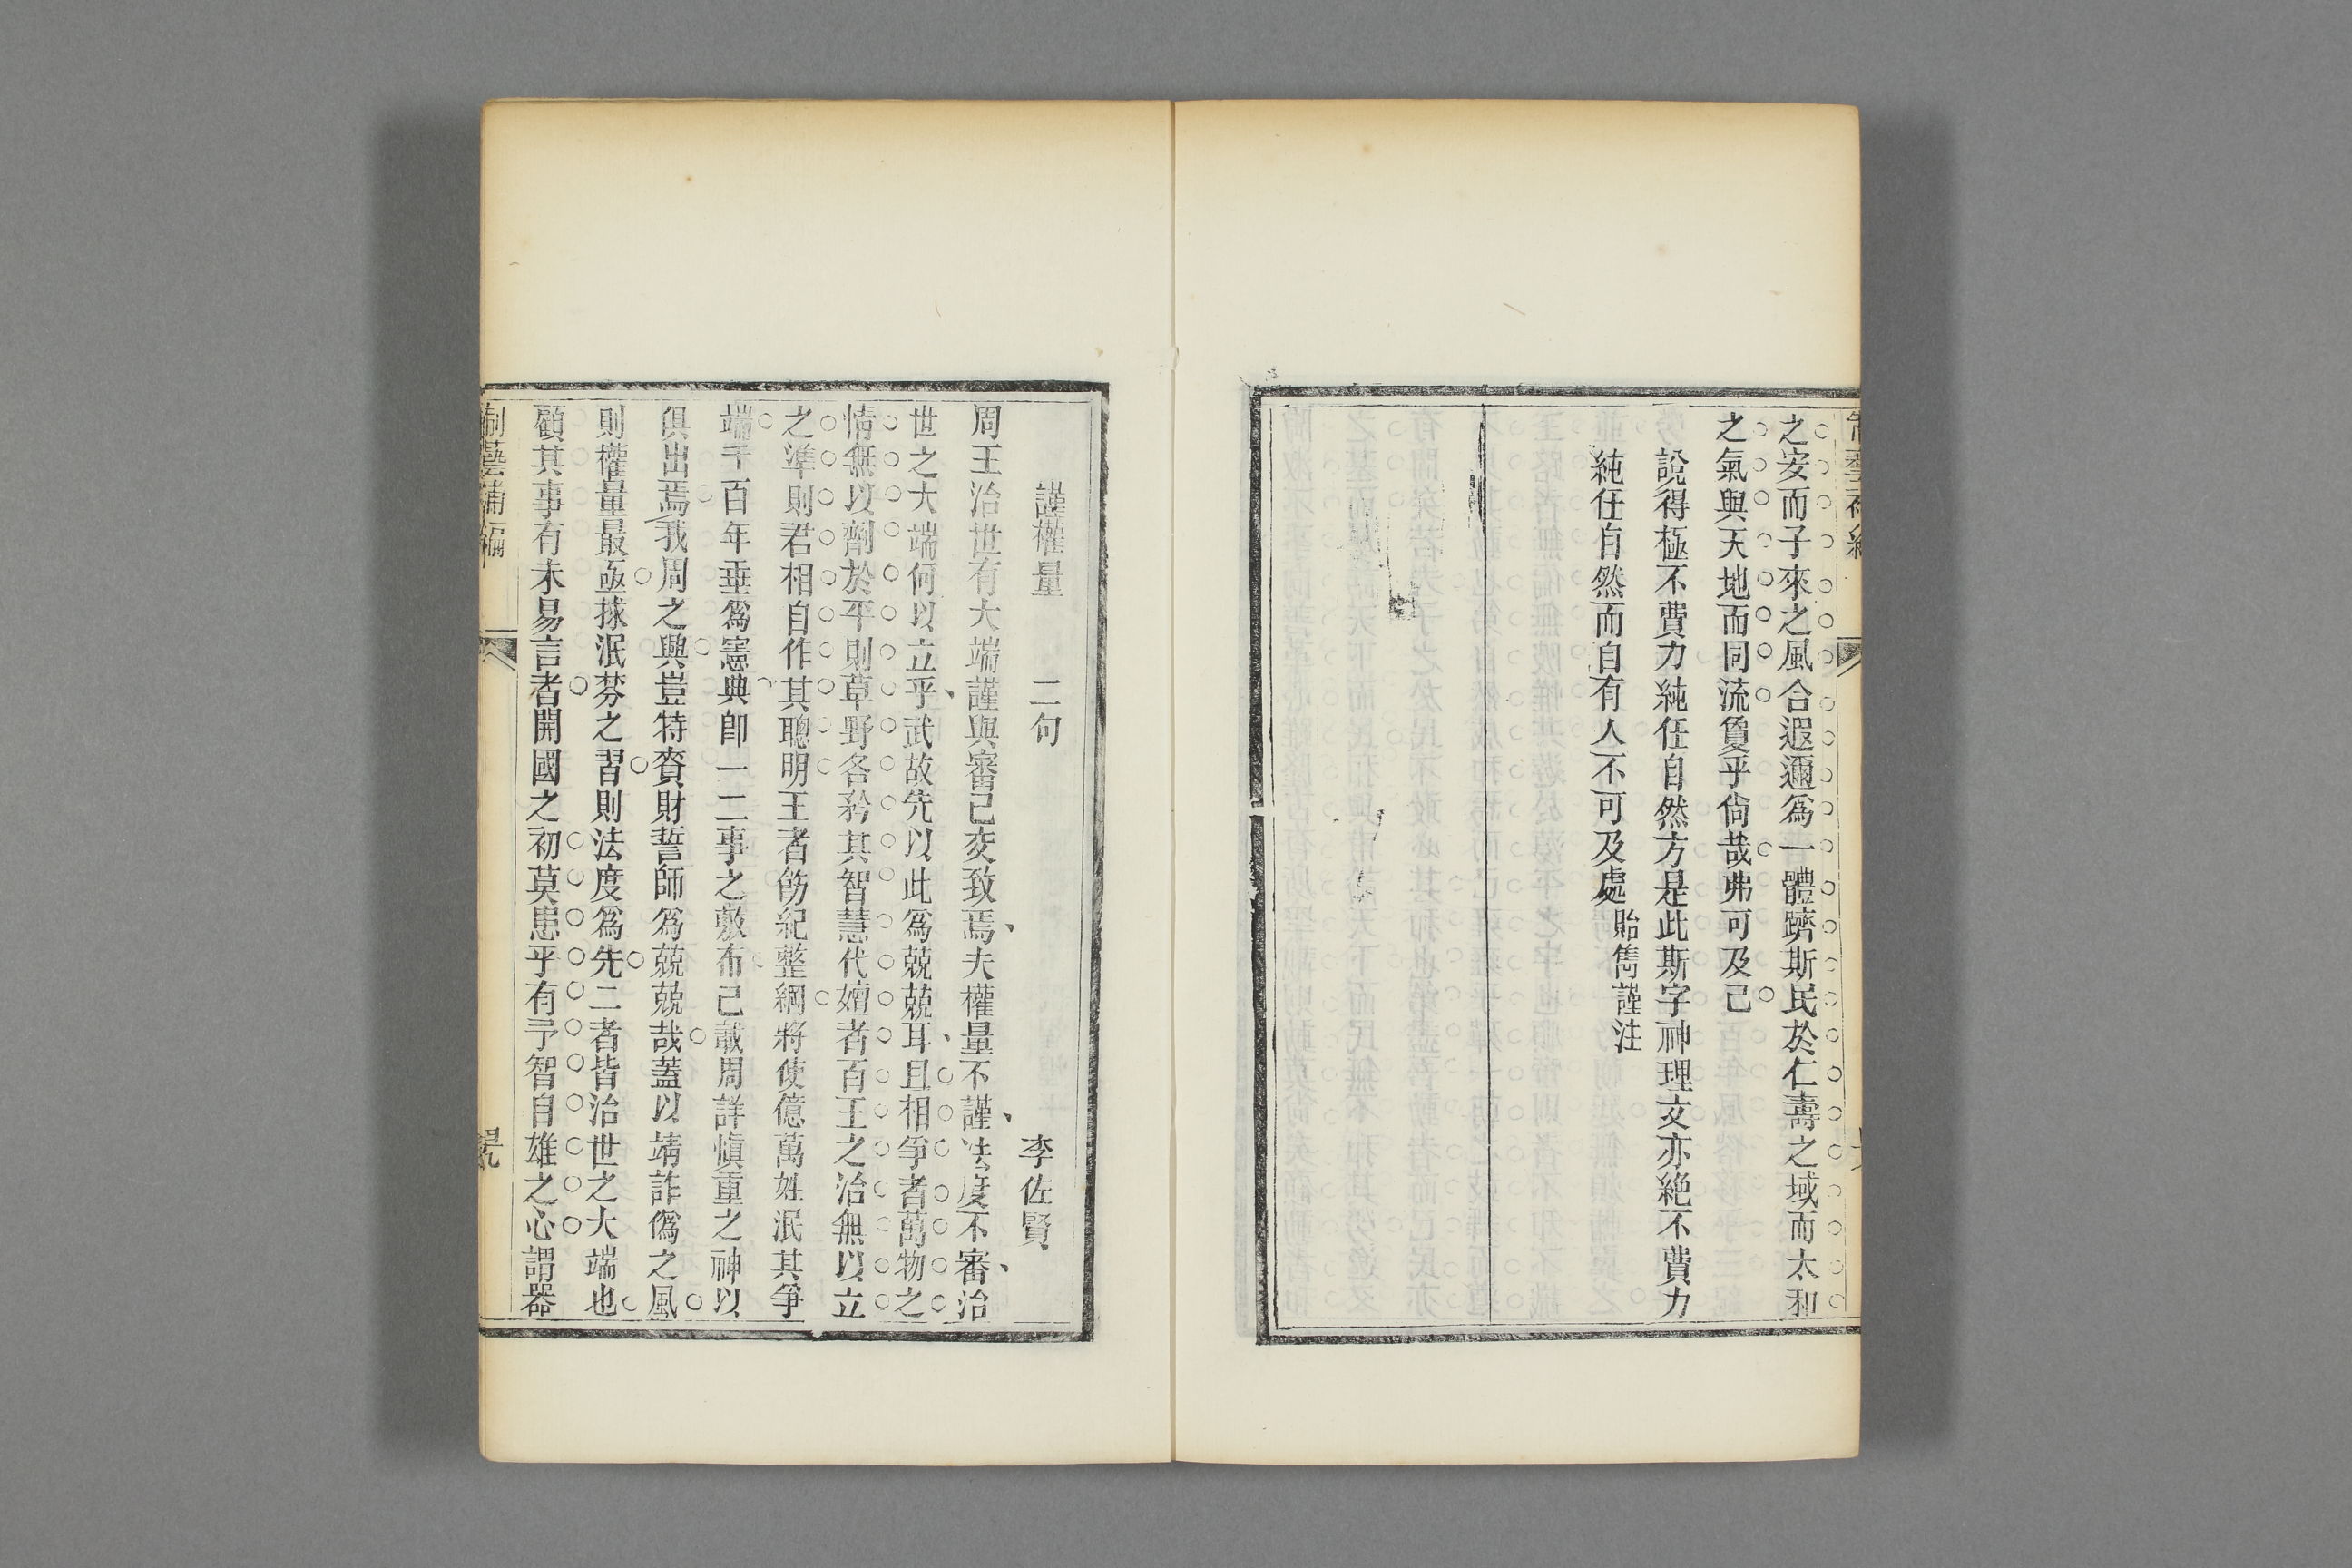 之安而子來之風合遐邇爲一體躋斯民於仁壽之域而太和
之氣與天地而同流敻乎尙哉弗可及己
說得極不費力純任自然方是此斯字神理文亦絶不費力
純任自然而自有人不可及處
貽雋謹注
謹權量 二句
李佐賢
周王治世有大端謹與審己交致焉夫權量不謹法度不審治
世之大端何以立乎武故先以此爲兢兢耳且相爭者萬物之
情無以劑於平則草野各矜其智慧代嬗者百王之治無以立
之準則君相自作其聰明王者飭紀整綱將使億萬姓泯其爭
端千百年垂爲憲典卽一二事之敷布己載周詳愼重之神以
俱出焉我周之興豈特賚財誓師爲兢兢哉蓋以靖詐僞之風
則權量最亟捄泯棼之習則法度爲先二者皆治世之大端也
顧其事有未易言者開國之初莫患乎有予智自雄之心謂器
制藝補編